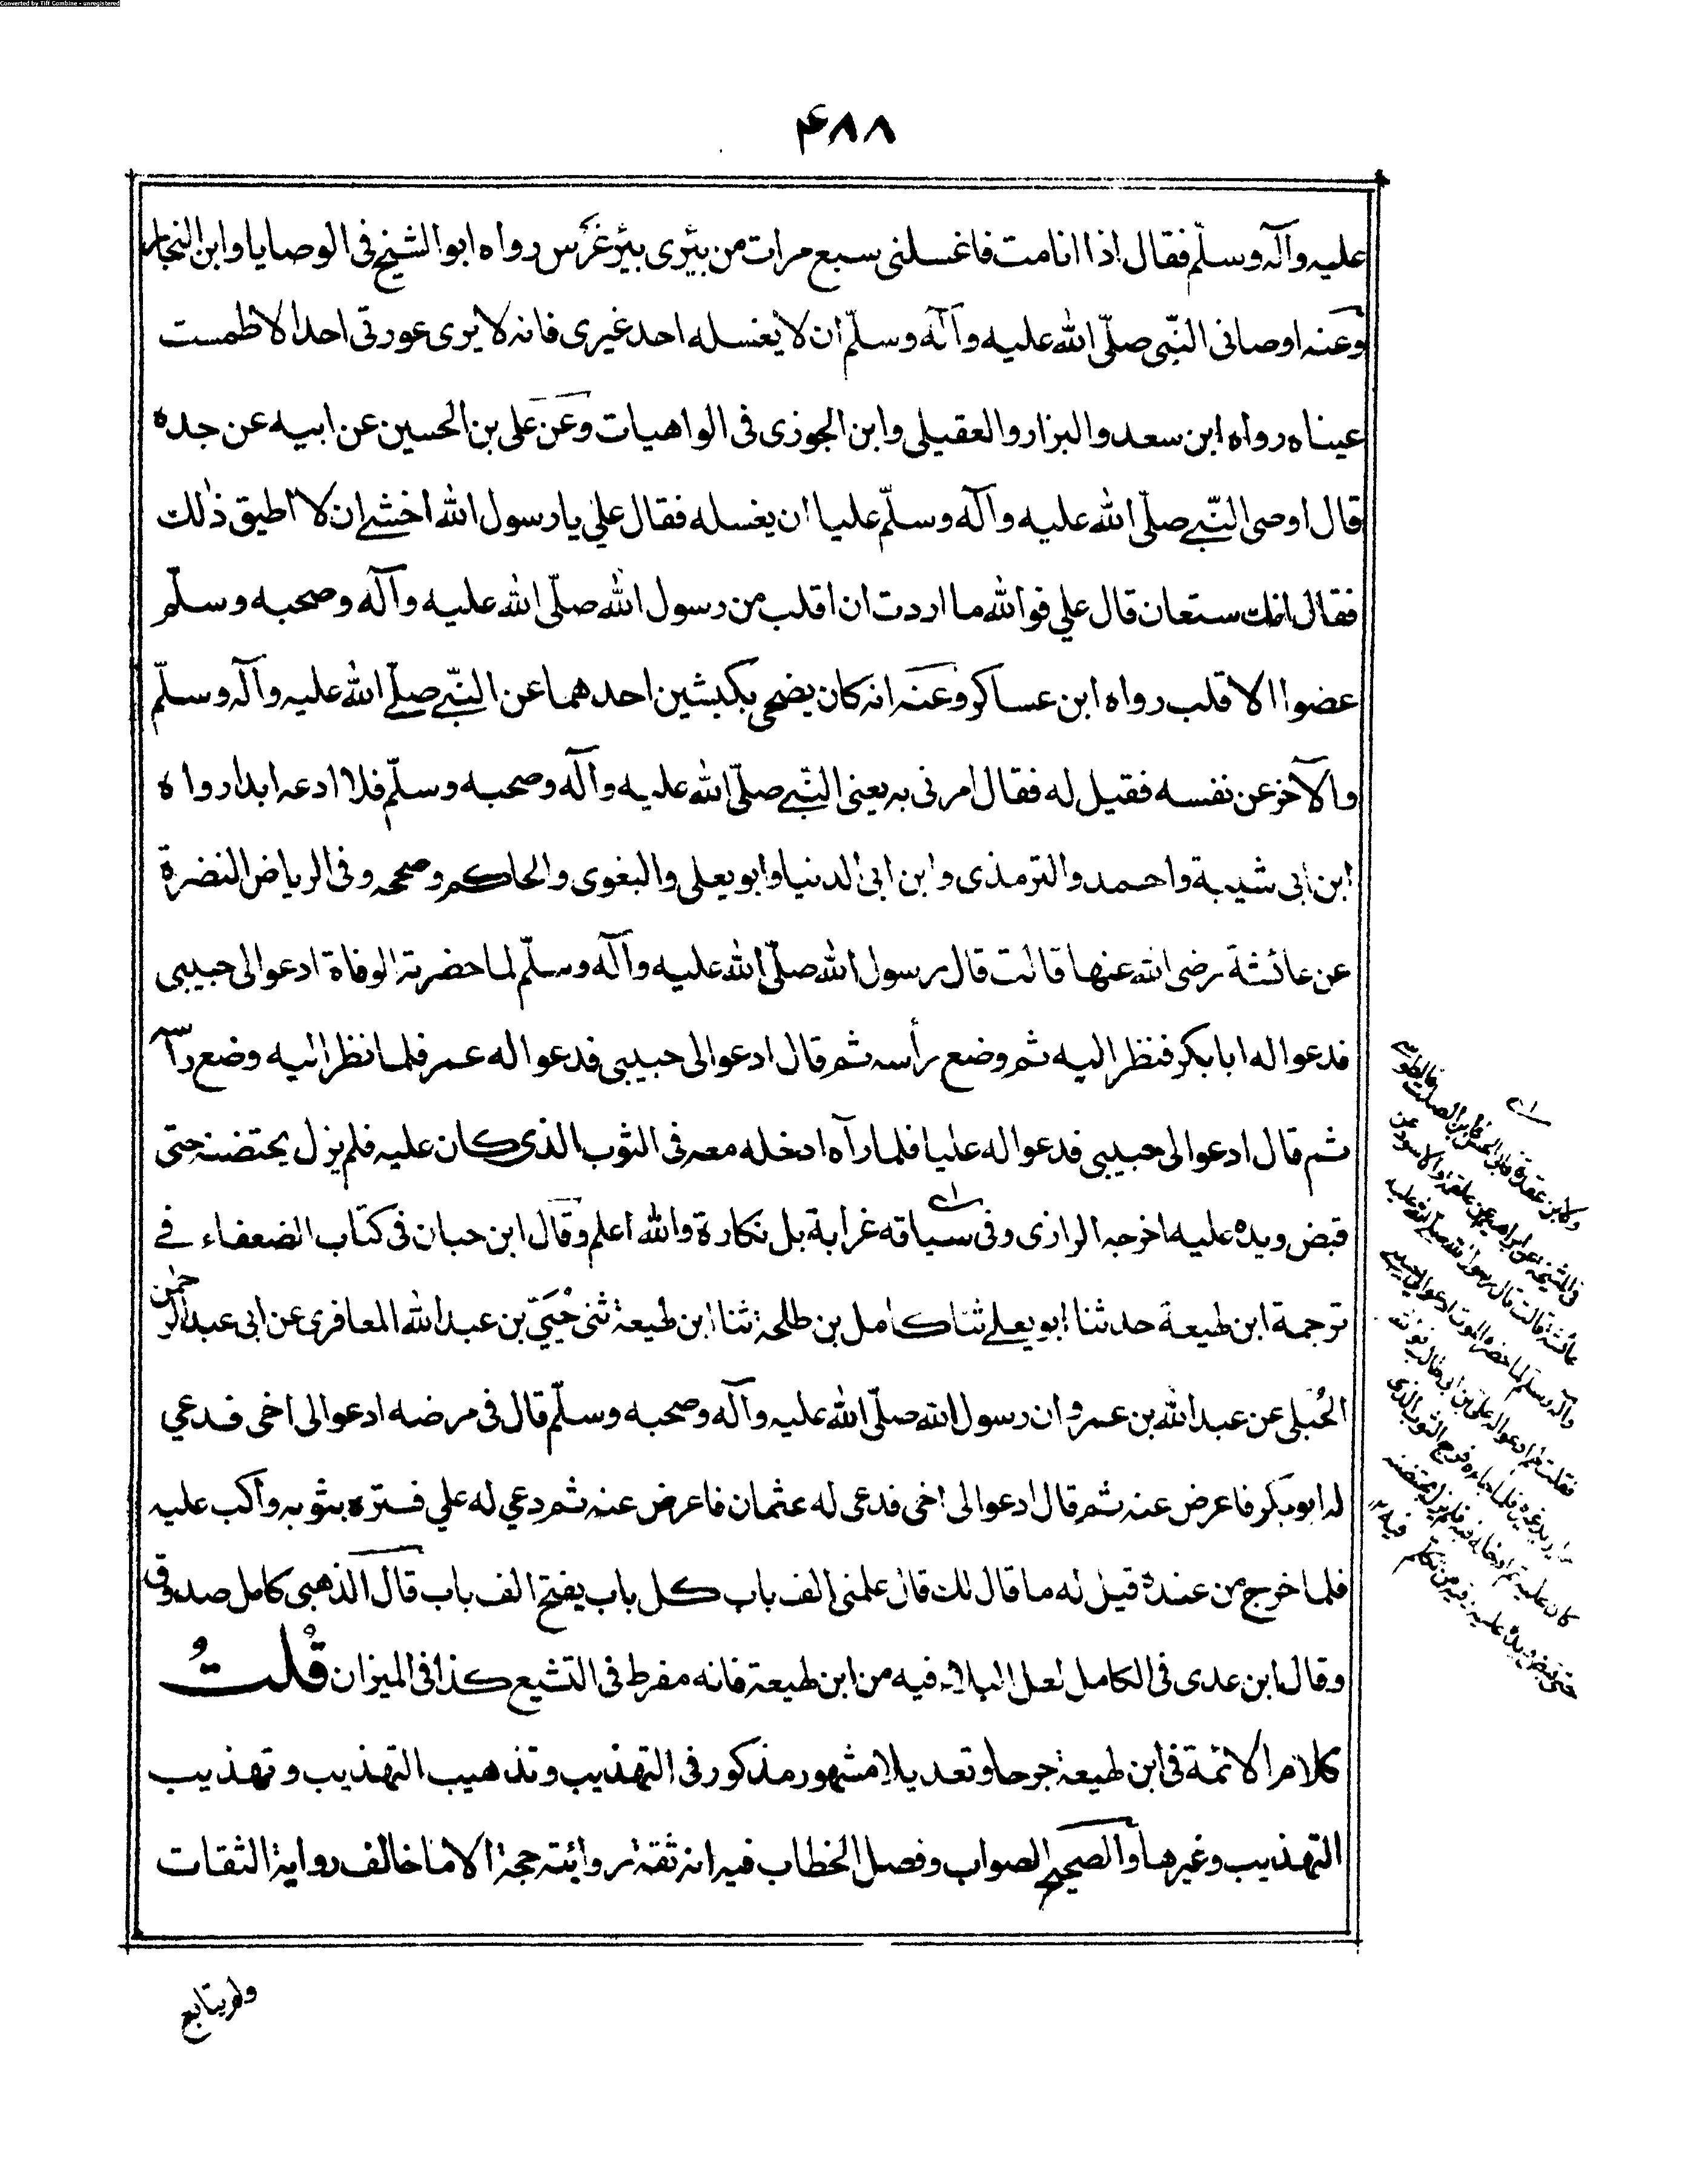 Converted by Tiff Combine - unregistered
۴۸۸
عليه وآله وسلّم فقال اذا انا مت فاغسلنى سبع مرات من بئرى بئر غرس رواه ابو الشيخ فى الوصايا وابن النجار
وعنه اوصانى النّبى صلّى الله عليه وآله وسلّم ان لا يغسله احد غيرى فانه لا يرى عورتى احد الا طمست
عيناه رواه ابن سعد والبزار والعقيلى وابن الجوزى فى الواهيات وعن على بن الحسين عن ابيه عن جده
قال اوصى النّبي صلّى الله عليه وآله وسلّم عليا ان يغسله فقال علي يا رسول الله اخشے ان لا اطيق ذلك
فقال انك ستعان قال علي فوالله ما اردت ان اقلب من رسول الله صلّى الله عليه وآله وصحبه وسلّم
عضوا الا قلب رواه ابن عساكر وعنه انه كان يضحى بكبشين احدهما عن النّبي صلّے الله عليه وآله وسلّم
والآخر عن نفسه فقيل له فقال امرنى به يعنى النّبي صلّى الله عليه وآله وصحبه وسلّم فلا ادعه ابدا رواه
ابن ابى شيبة واحمد والترمذى وابن ابى الدنيا وابو يعلى والبغوى والحاكم وصححه وفى الرياض النضرة
عن عائشة رضى الله عنها قالت قال رسول الله صلّى الله عليه وآله وسلّم لما حضرته الوفاة ادعوا لى حبيبى
فدعوا له ابا بكر فنظر اليه ثم وضع رأسه ثم قال ادعوا لى حبيبى فدعوا له عمر فلما نظر اليه وضع رأسه
ثم قال ادعوا لى حبيبى فدعوا له عليا فلما رآه ادخله معه فى الثوب الذى كان عليه فلم يزل يحتضنه حتى
قبض ويده عليه اخرجه الرازى وفى سياقه غرابة بل نكارة والله اعلم وقال ابن حبان فى كتاب الضعفاء فے
ترجمة ابن لهيعة حدثنا ابو يعلے ثنا كامل بن طلحة ثنا ابن لهيعة ثنى حُيَيّ بن عبد الله المعافرى عن ابى عبد الرحمن
الحُبلى عن عبد الله بن عمرو ان رسول الله صلّى الله عليه وآله وصحبه وسلّم قال فى مرضه ادعوا لى اخى فدعي
له ابو بكر فاعرض عنه ثم قال ادعوا لى اخى فدعى له عثمان فاعرض عنه ثم دعي له علي فستره بثوبه وأكب عليه
فلما خرج من عنده قيل له ما قال لك قال علمنى الف باب كل باب يفتح الف باب قال الذهبى كامل صدوق
وقال ابن عدى فى الكامل لعل البلاء فيه من ابن لهيعة فانه مفرط فى التشيع كذا فى الميزان قُلتُ
كلام الائمة فى ابن لهيعة جرحا وتعديلا مشهور مذكور فى التهذيب وتذهيب التهذيب وتهذيب
التهذيب وغيرها والصحيح الصواب وفصل الخطاب فيه انه ثقة روائته حجة الا ما خالف رواية الثقات
ولم يتابع
عن ابراهيم عن علقمة والاسود عن
عائشة قالت قال رسول الله صلے الله عليه
وآله وسلم لما حضره الموت ادعوا لى حبيبے
فقلت ادعوا له على بن ابى طالب فوالله
ما يريد غيره فلما جاءه فرج الثوب الذى
كان عليه ثم ادخله فيه فلم يزل يحتضنه
حتى قبض ويده عليه